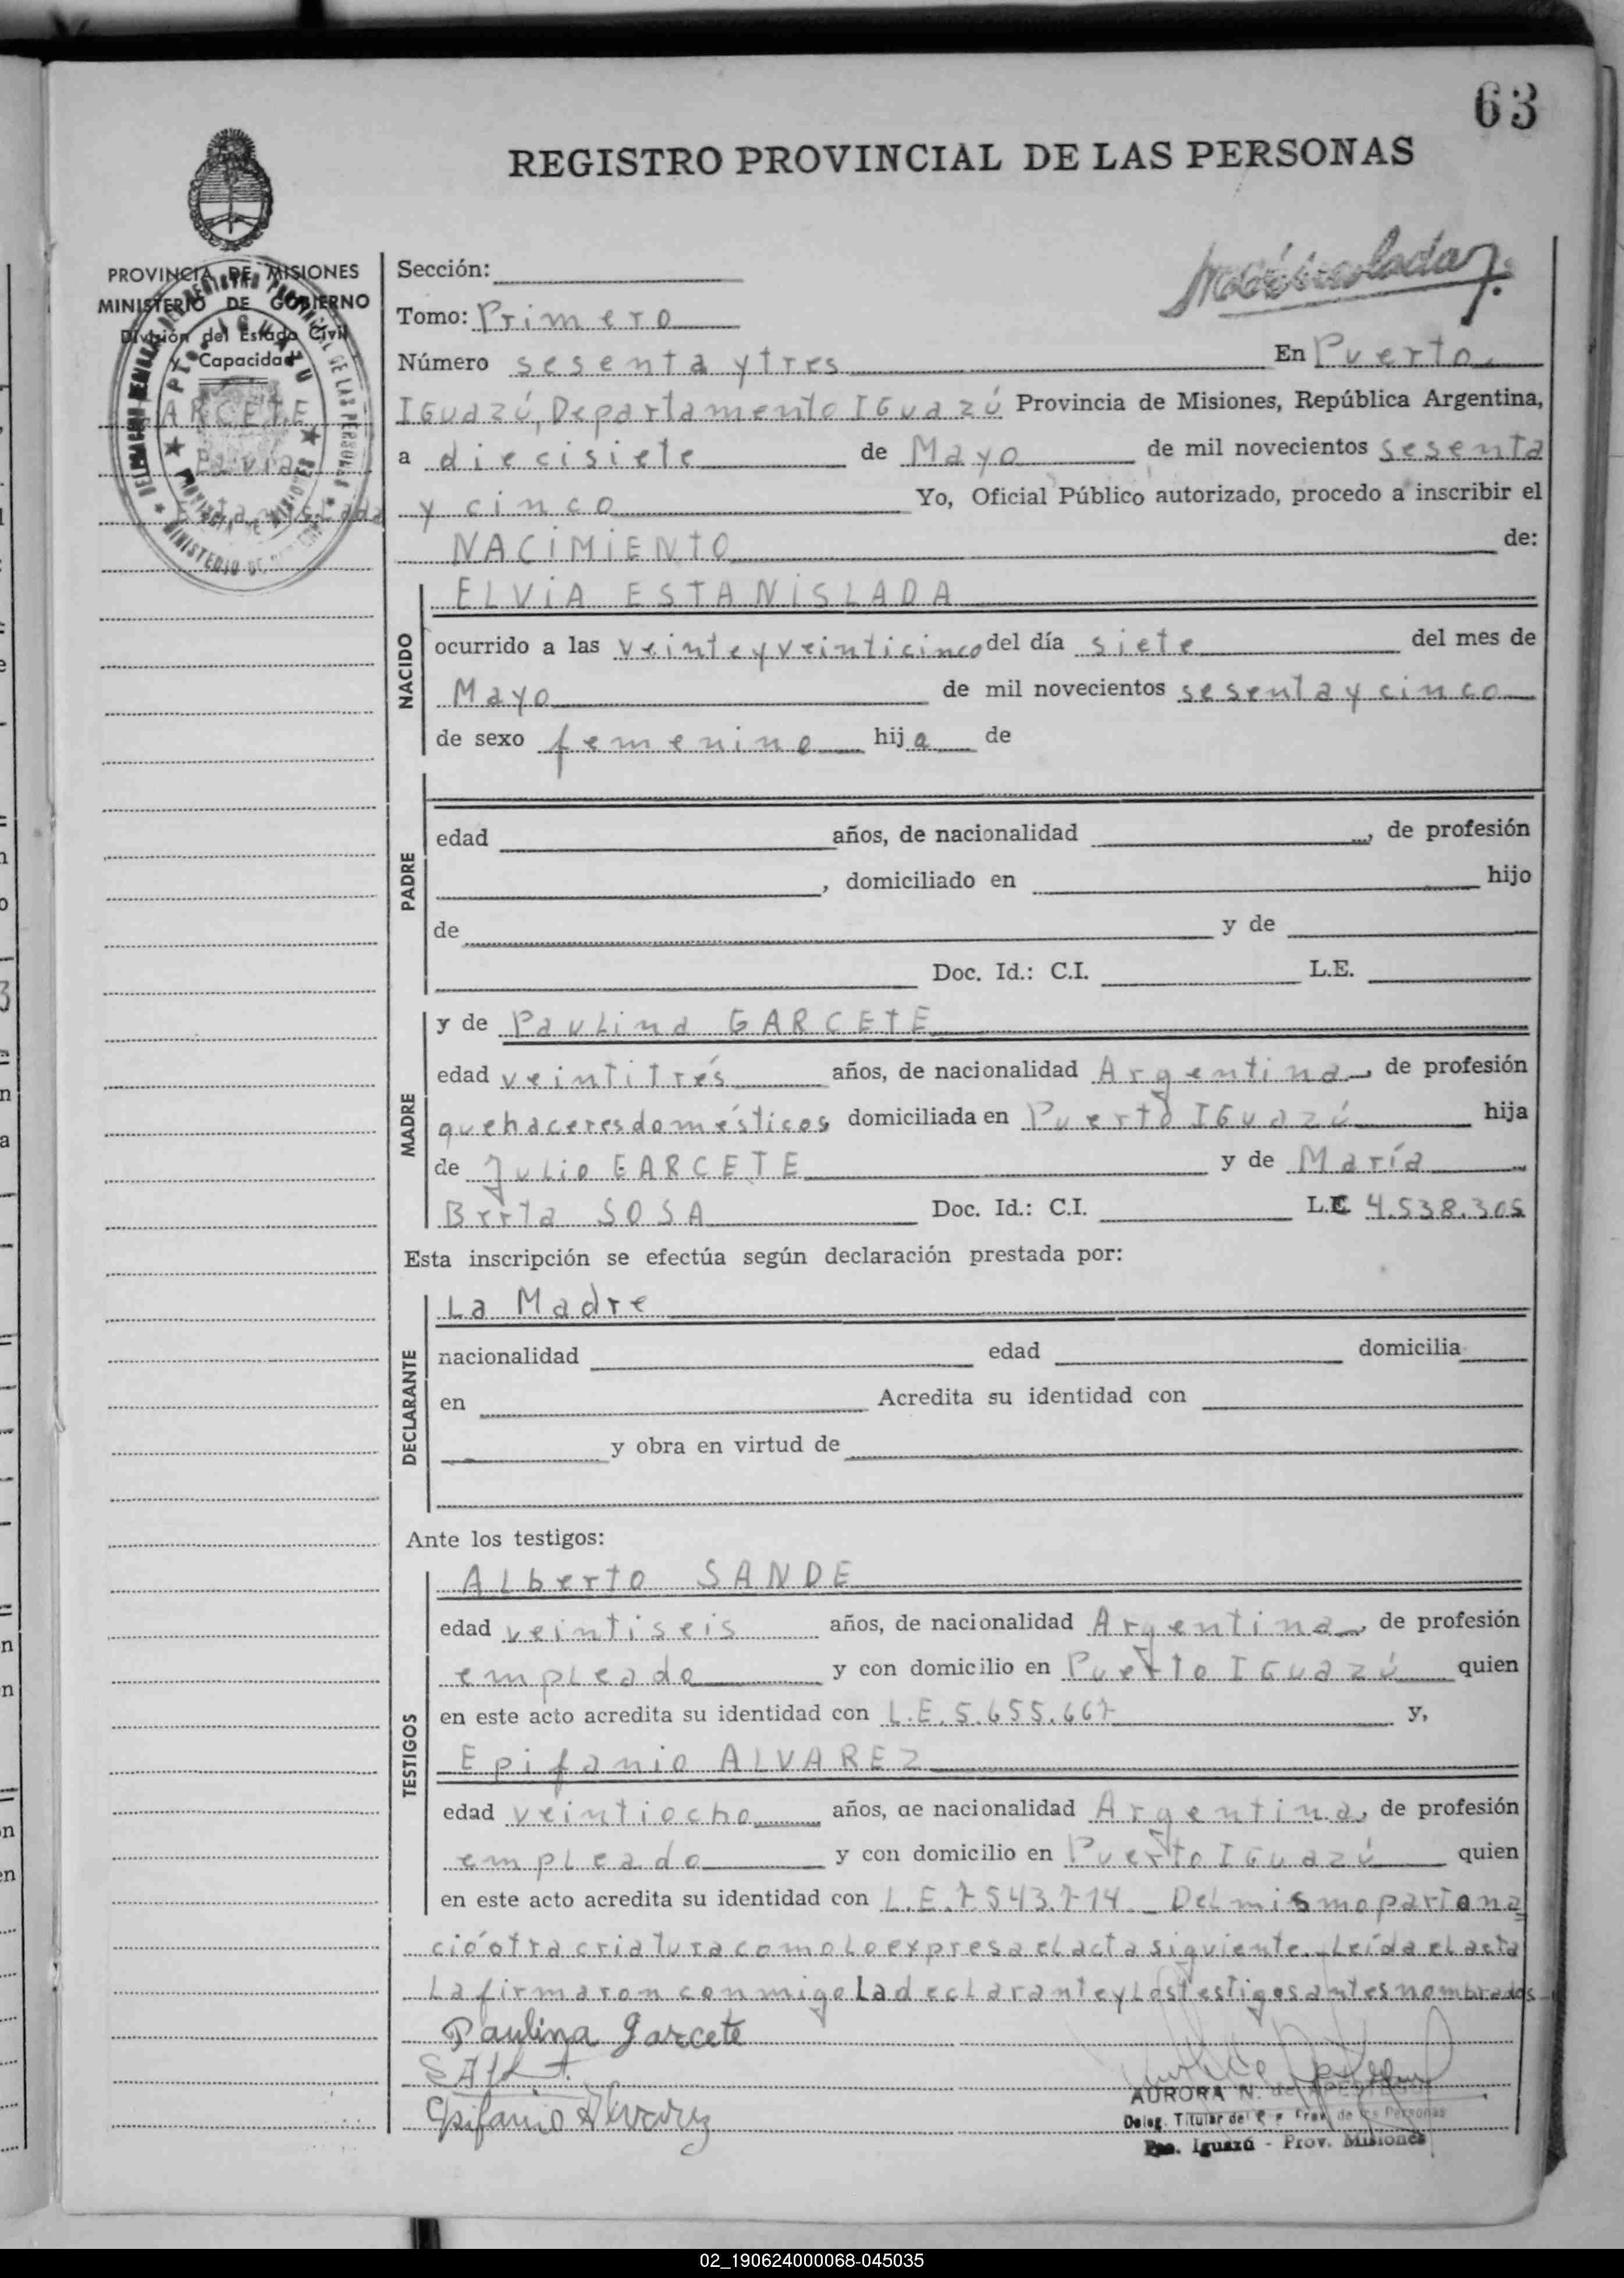 63
REGISTRO PROVINCIAL DE LAS PERSONAS
PROVINCIA DE MISIONES
MINISTERIO DE GOBIERNO
División del Estado Civil
y Capacidad
GARCETE
Estanislada
Sección:
Tomo: Primero
Número sesenta y tres En Puerto
IGuazú, Departamento IGuazú Provincia de Misiones, República Argentina,
a diecisiete de Mayo de mil novecientos sesenta
y cinco Yo, Oficial Público autorizado, procedo a inscribir el
NACIMIENTO de:
NACIDO
ELVIA ESTANISLADA
ocurrido a las veinte y veinticinco del día siete del mes de
Mayo de mil novecientos sesenta y cinco
de sexo femenino hija de
PADRE
edad años, de nacionalidad , de profesión
, domiciliado en hijo
de y de
Doc. Id.: C.I. L.E.
MADRE
y de Paulina GARCETE
edad veintitrés años, de nacionalidad Argentina, de profesión
quehaceres domésticos domiciliada en Puerto IGuazú hija
de Julio GARCETE y de María
Berta SOSA Doc. Id.: C.I. L.C 4.538.305
Esta inscripción se efectúa según declaración prestada por:
DECLARANTE
La Madre
nacionalidad edad domicilia
en Acredita su identidad con
y obra en virtud de
Ante los testigos:
TESTIGOS
Alberto SANDE
edad veintiseis años, de nacionalidad Argentina, de profesión
empleado y con domicilio en Puerto IGuazú quien
en este acto acredita su identidad con L.E. 5.655.667 y,
Epifanio ALVAREZ
edad veintiocho años, de nacionalidad Argentina, de profesión
empleado y con domicilio en Puerto IGuazú quien
en este acto acredita su identidad con L.E. 7.543.714 Del mismo parto na
ció otra criatura como lo expresa el acta siguiente. Leída el acta
La firmaron conmigo La declarante y Los testigos antes nombrados
Paulina Garcete
Epifanio Alvarez
AURORA N. de
Deleg. Titular del R. Prov. de las Personas
Pto. Iguazú - Prov. Misiones
02_190624000068-045035